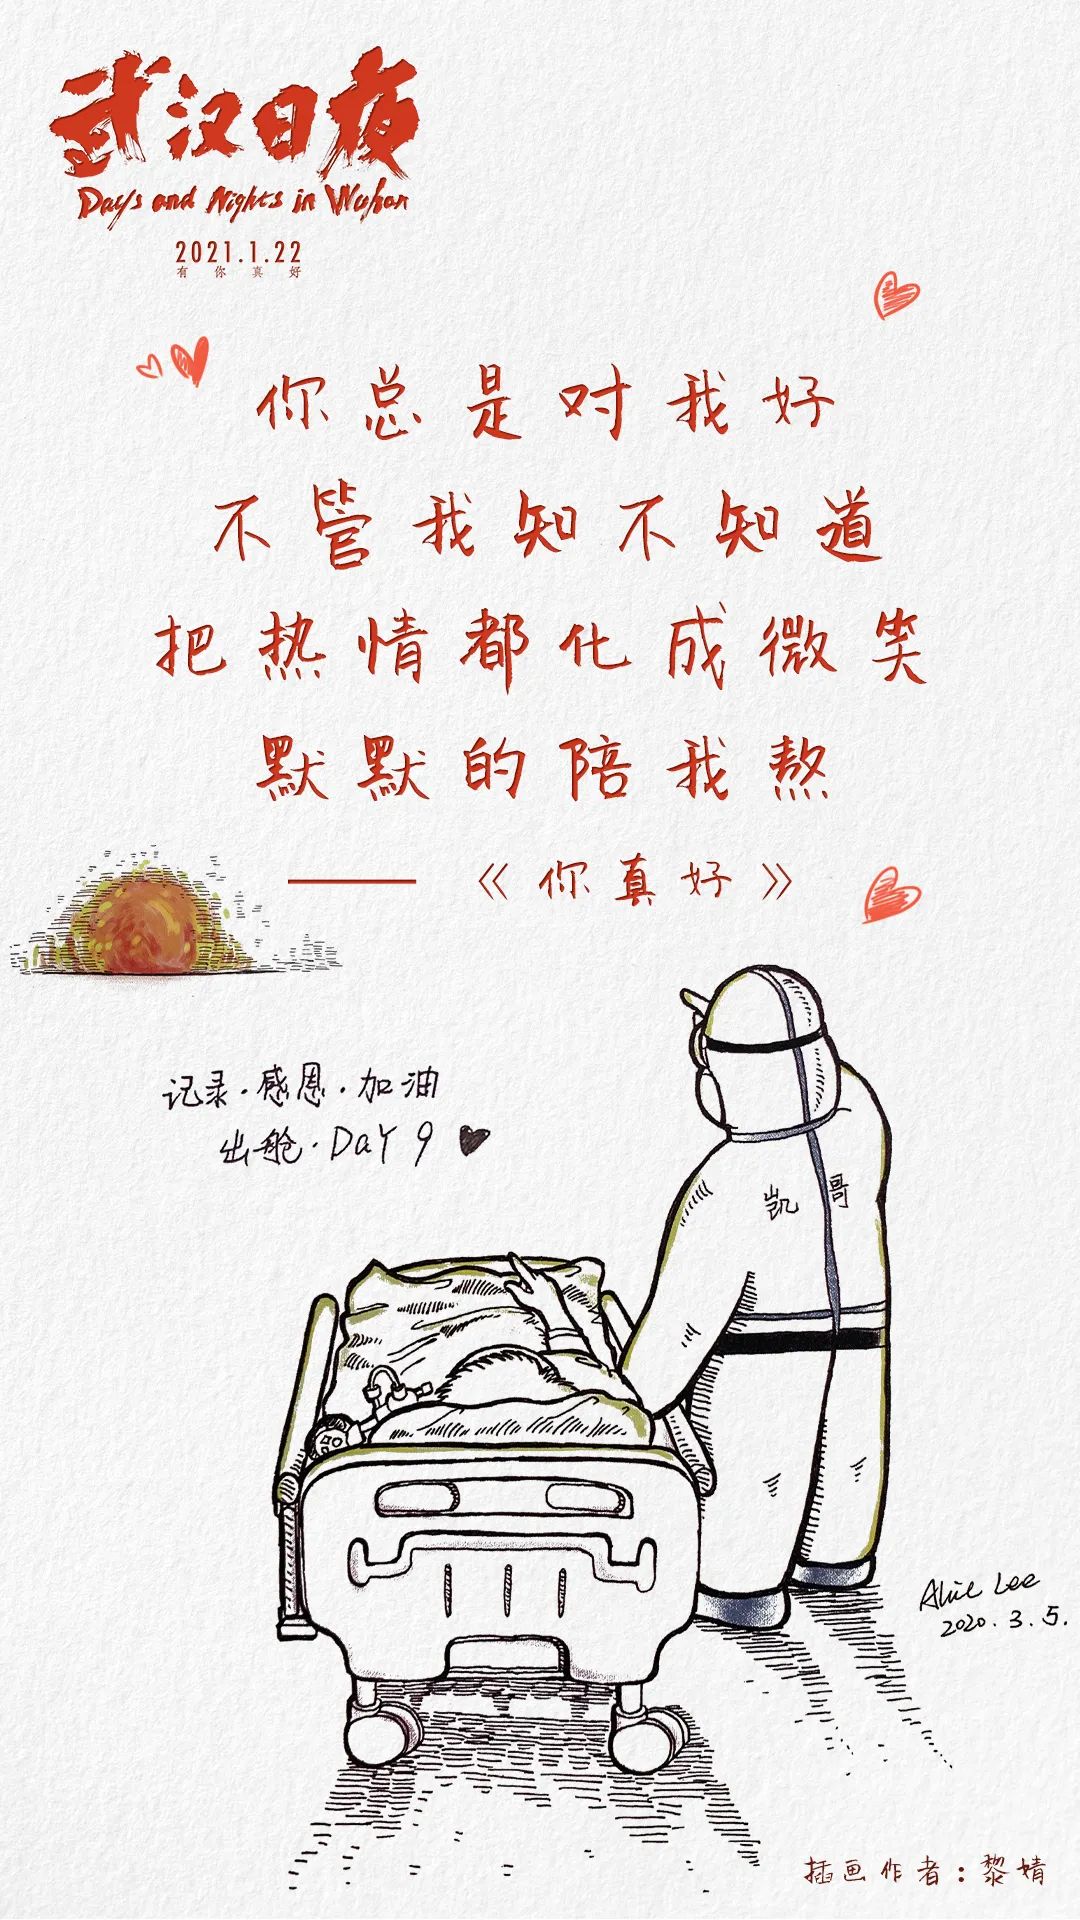 武汉日夜
Days and Nights in Wuhan
2021.1.22
有你真好
你总是对我好
不管我知不知道
把热情都化成微笑
默默的陪我熬
——《你真好》
记录·感恩·加油
出舱·DaY 9
凯哥
Alie Lee
2020.3.5.
插画作者：黎婧